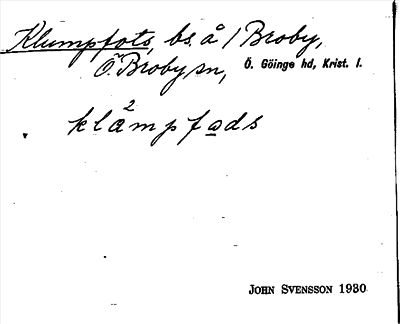 Klumpfots, bs. å 1 Broby,
Ö. Broby sn, Ö. Göinge hd, Krist. l.
klа̊²mpfo̲ds
JOHN SVENSSON 1930